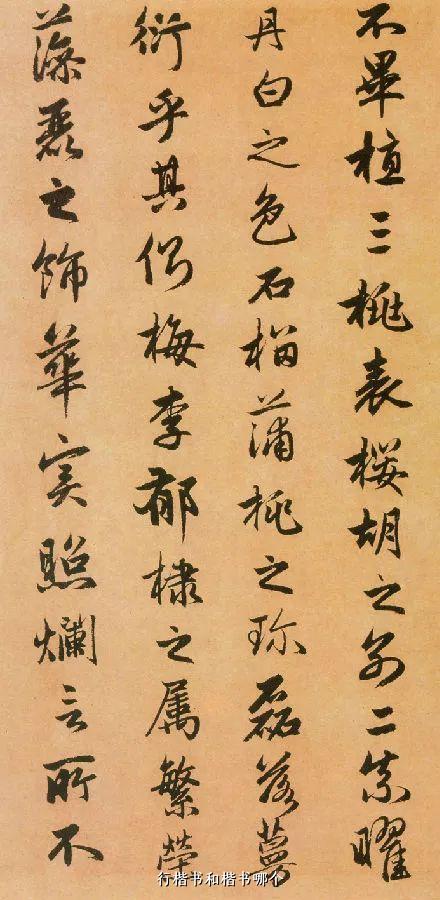 不畢植三桃表櫻胡之別二柰曜
丹白之色石榴蒲桃之珎磊落蔓
衍乎其側梅李郁棣之属繁榮
藻麗之飾華實照爛言所不
行楷书和楷书哪个